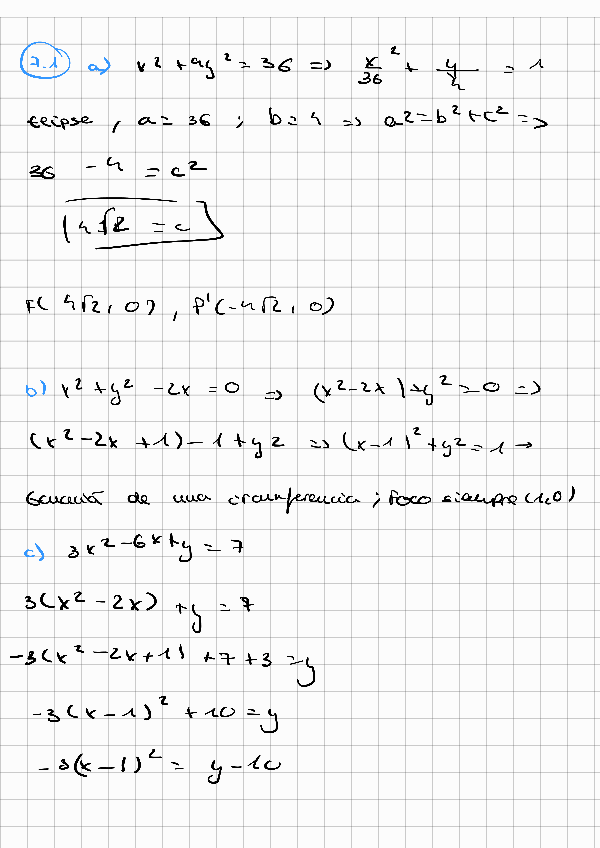 7.1 a) x² + 9y² = 36 => x²/36 + y/4 = 1
elipse, a = 36 ; b = 4 => a² = b² + c² =>
36 - 4 = c²
4√2 = c
F( 4√2, 0 ) , F'(-4√2, 0)
b) x² + y² - 2x = 0 => (x² - 2x) + y² = 0 =>
(x² - 2x + 1) - 1 + y² => (x-1)² + y² = 1 →
Ecuación de una circunferencia ; foco siempre (1,0)
c) 3x² - 6x + y = 7
3(x² - 2x) + y = 7
-3(x² - 2x + 1) + 7 + 3 = y
-3(x-1)² + 10 = y
-3(x-1)² = y - 10